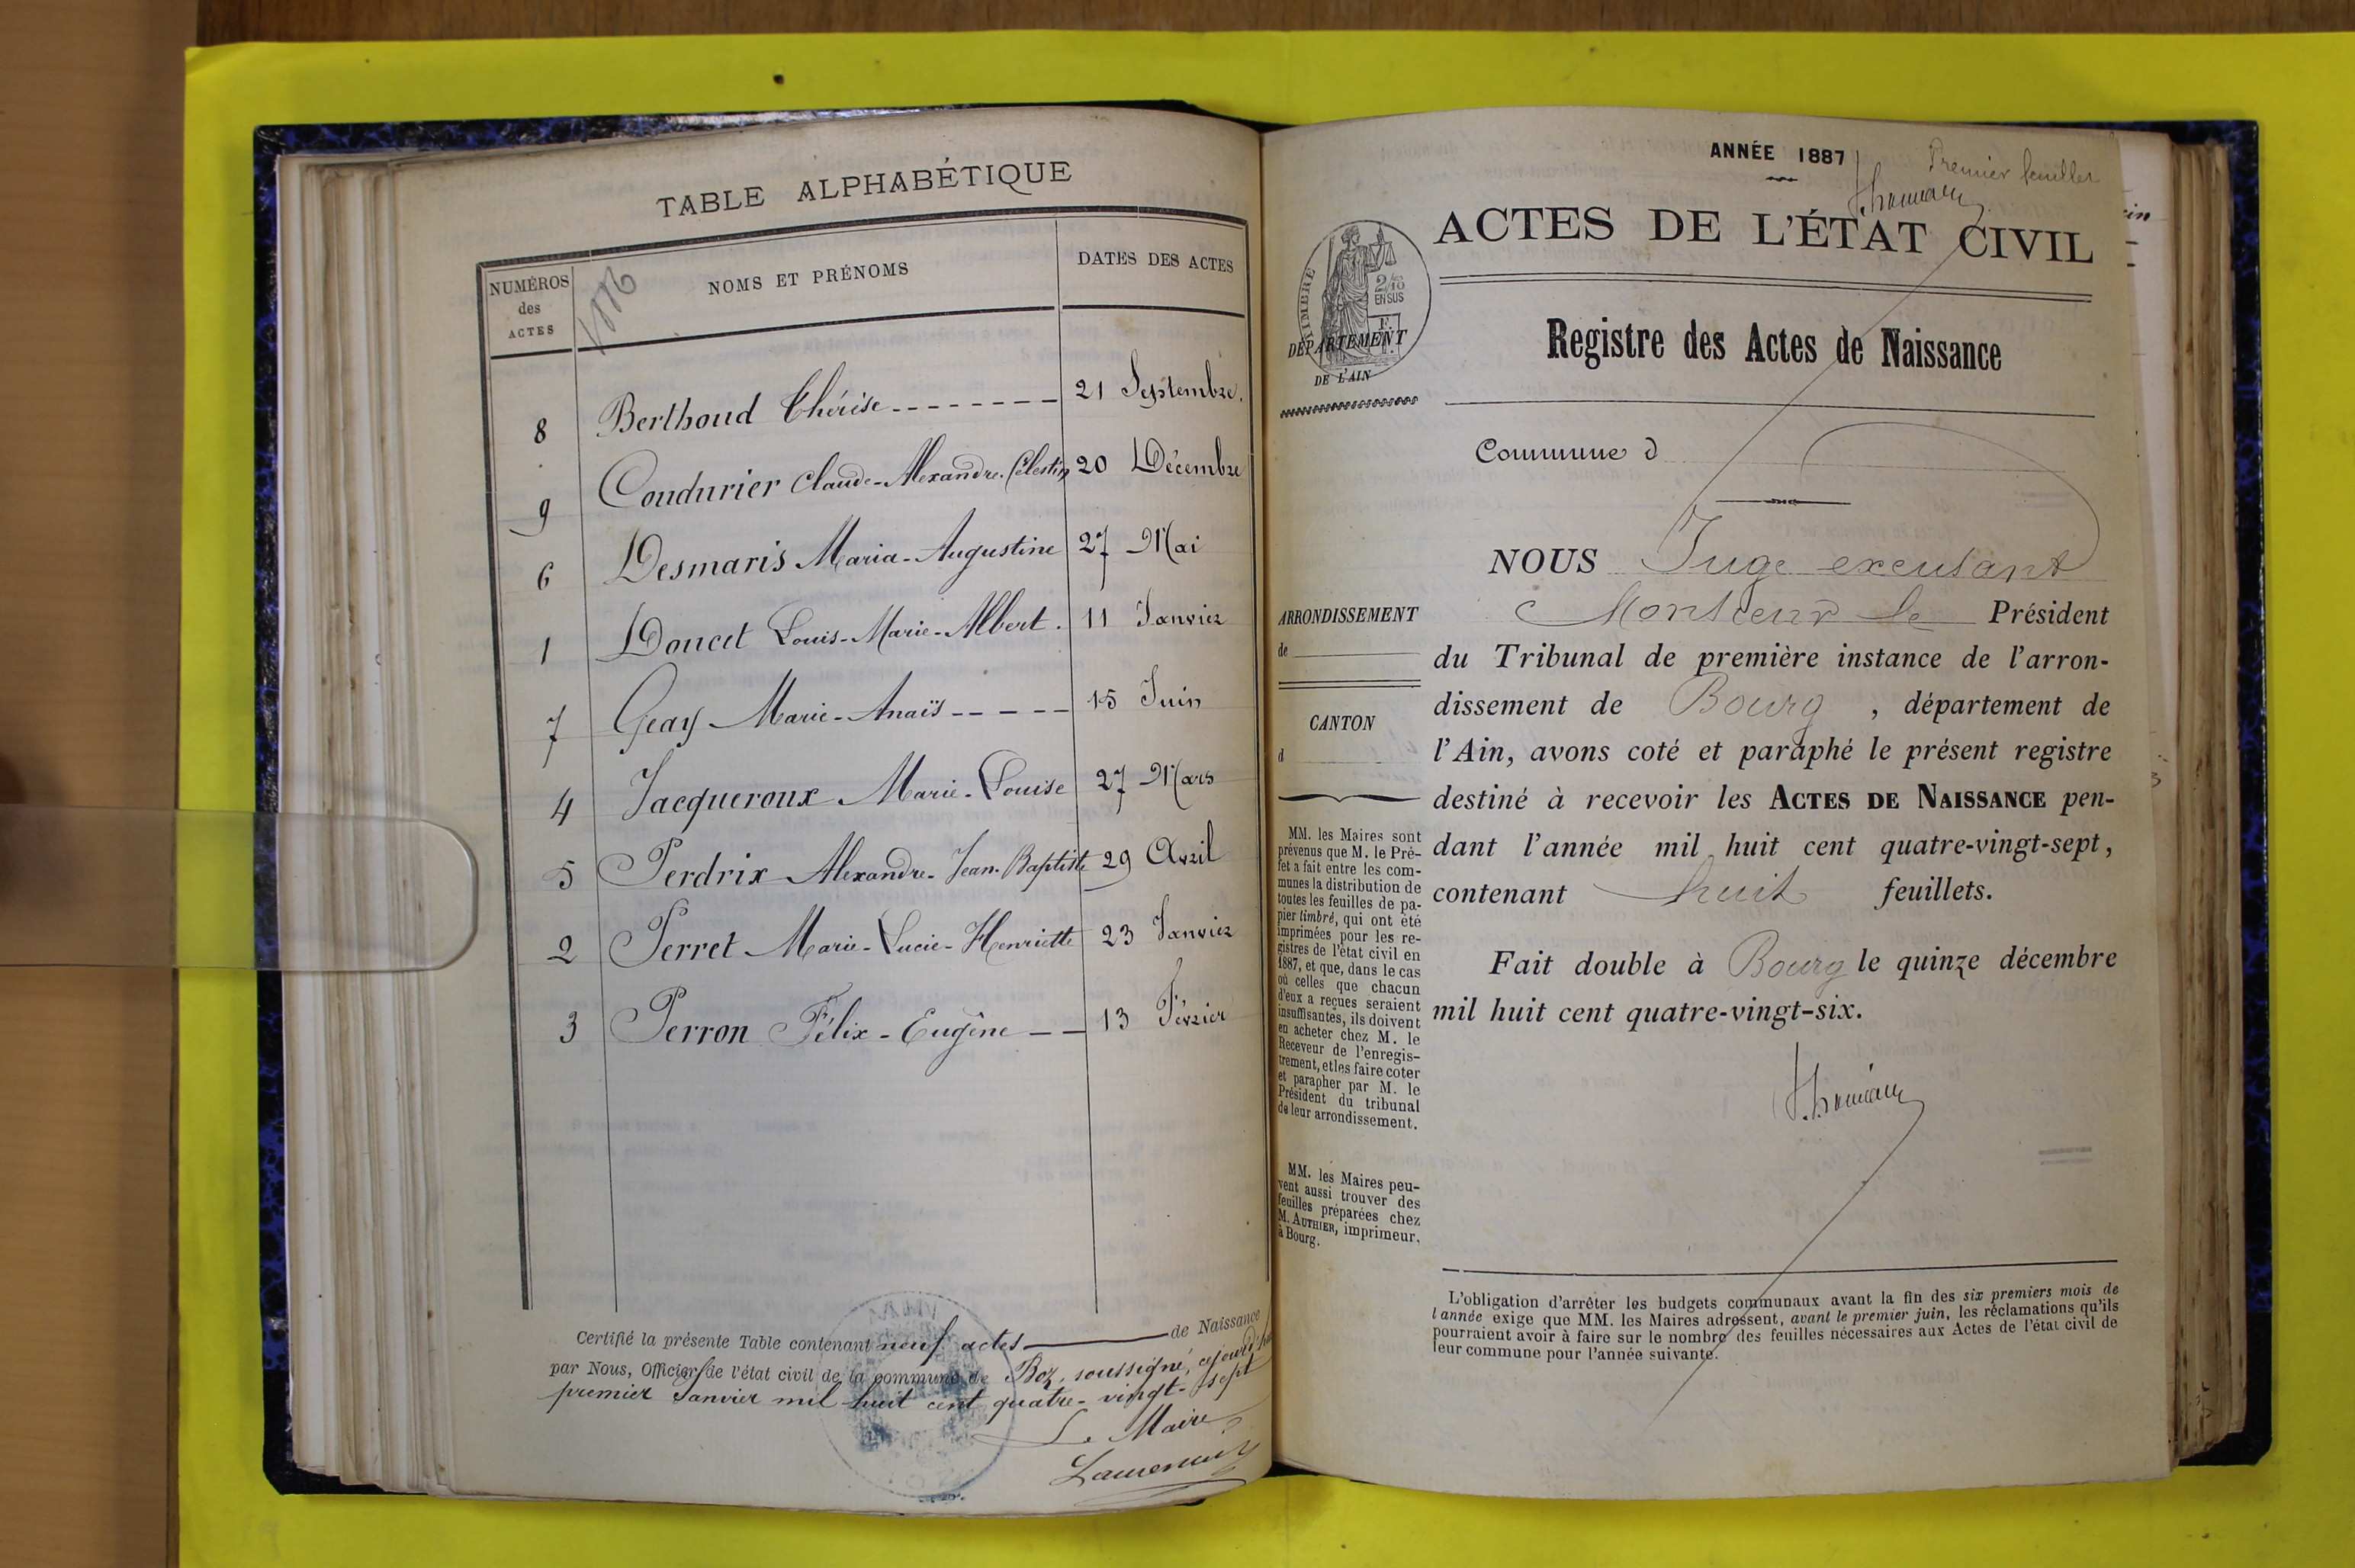 TABLE ALPHABÉTIQUE
NUMÉROS des ACTES
1886
NOMS ET PRÉNOMS
DATES DES ACTES
8 Berthoud Thérèse -------- 21 Septembre.
9 Coudurier Claude-Alexandre-Célestin 20 Décembre
6 Desmaris Maria-Augustine 27 Mai
1 Doucet Louis-Marie-Albert. 11 Janvier
7 Geay Marie-Anaïs ----- 15 Juin
4 Jacqueroux Marie-Louise 27 Mars
5 Perdrix Alexandre-Jean-Baptiste 29 Avril
2 Perret Marie-Lucie-Henriette 23 Janvier
3 Perron Félix-Eugène -- 13 Février
Certifié la présente Table contenant neuf actes de Naissance
par Nous, Officier de l'état civil de la commune de Boz, soussigné, cejourd'hui
premier Janvier mil huit cent quatre-vingt-sept
Le Maire
ANNÉE 1887
Premier feuillet
ACTES DE L'ÉTAT CIVIL
TIMBRE
2/10
EN SUS
DÉPARTEMENT
DE L'AIN
Registre des Actes de Naissance
Commune d
NOUS Juge excusant
Monsieur le Président
du Tribunal de première instance de l'arron-
dissement de Bourg, département de
l'Ain, avons coté et paraphé le présent registre
destiné à recevoir les ACTES DE NAISSANCE pen-
dant l'année mil huit cent quatre-vingt-sept,
contenant huit feuillets.
Fait double à Bourg le quinze décembre
mil huit cent quatre-vingt-six.
ARRONDISSEMENT
de
CANTON
d
MM. les Maires sont
prévenus que M. le Pré-
fet a fait entre les com-
munes la distribution de
toutes les feuilles de pa-
pier timbré, qui ont été
imprimées pour les re-
gistres de l'état civil en
1887, et que, dans le cas
où celles que chacun
d'eux a reçues seraient
insuffisantes, ils doivent
en acheter chez M. le
Receveur de l'enregis-
trement, et les faire coter
et parapher par M. le
Président du tribunal
de leur arrondissement.
MM. les Maires peu-
vent aussi trouver des
feuilles préparées chez
M. AUTHIER, imprimeur,
à Bourg.
L'obligation d'arrêter les budgets communaux avant la fin des six premiers mois de
l'année exige que MM. les Maires adressent, avant le premier juin, les réclamations qu'ils
pourraient avoir à faire sur le nombre des feuilles nécessaires aux Actes de l'état civil de
leur commune pour l'année suivante.